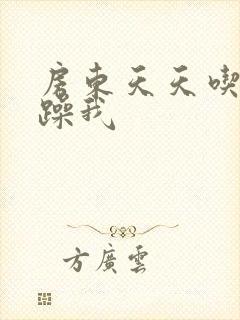 房東天天喫
躁我
方廣雲